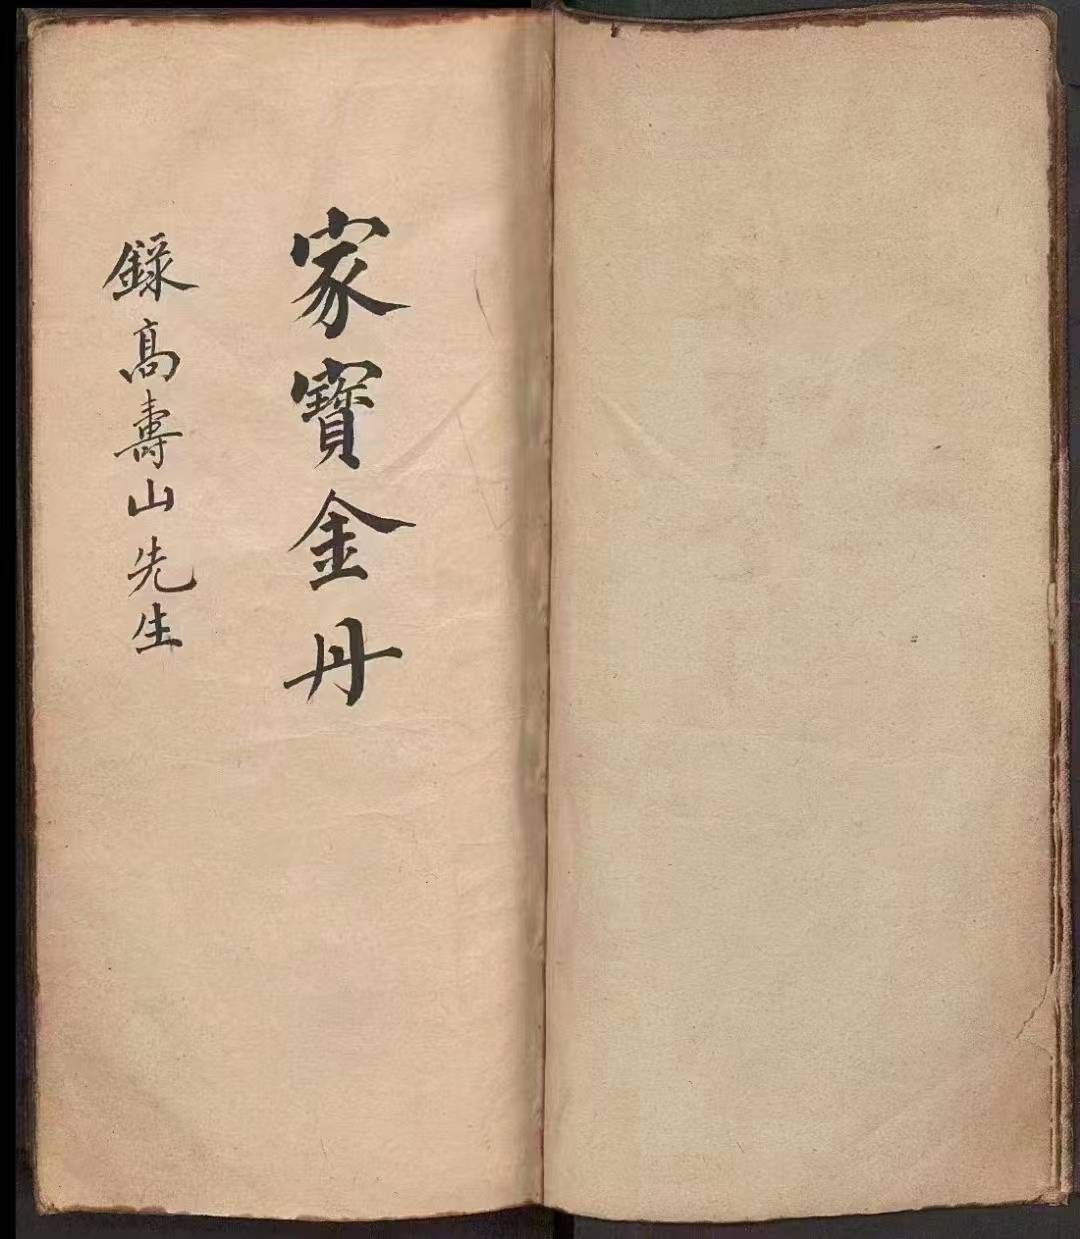 家寳金丹
錄高壽山先生